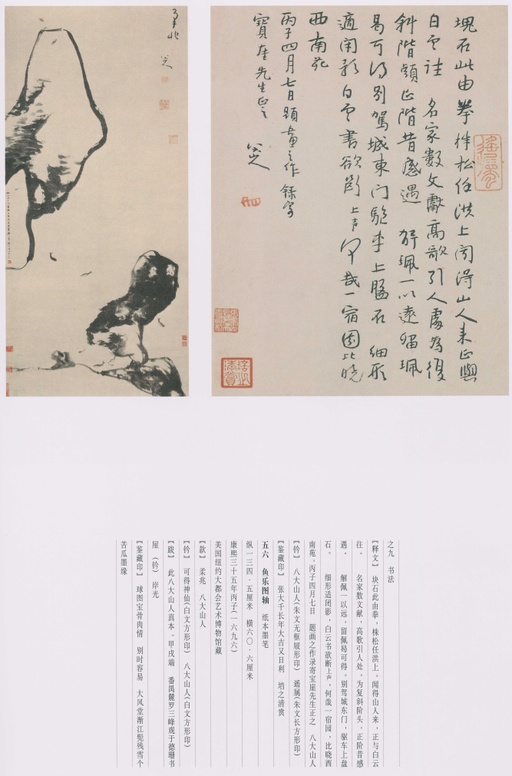 塊石此由拳株松任洪上闻得山人来正與
白雲往 名家數文獻高歌引人處為復
斜階頭正階昔感遇 解珮一以遠留珮
易可得别駕城東門驅車上盤石 細形
適團影白雲書欲斷上声何哉一宿園比曉
西南苑
丙子四月七日題畫之作録寄
寶崖先生正之
八大山人
之九 书法
【释文】 块石此由拳，株松任洪上。闻得山人来，正与白云
往。 名家数文献，高歌引人处。为复斜阶头，正阶昔感
遇。 解佩一以远，留佩易可得。别驾城东门，驱车上盘
石。 细形适团影，白云书欲断上声。何哉一宿园，比晓西
南苑。丙子四月七日 题画之作录寄宝崖先生正之 八大山人
【钤】 八大山人(朱文无框屐形印) 遥属(朱文长方形印)
【鉴藏印】 张大千长年大吉又日利 焰之清赏
五六 鱼乐图轴 纸本墨笔
纵一三四·五厘米 横六〇·六厘米
康熙三十五年丙子(一六九六)
美国纽约大都会艺术博物馆藏
【款】 柔兆 八大山人
【钤】 可得神仙(白文方形印) 八大山人(白文方形印)
【跋】 此八大山人真本，甲戌端 番禺麓罗三峰观于德珊书
屋 (钤) 岸光
【鉴藏印】 球图宝骨肉情 别时容易 大风堂渐江髡残雪个
苦瓜墨缘